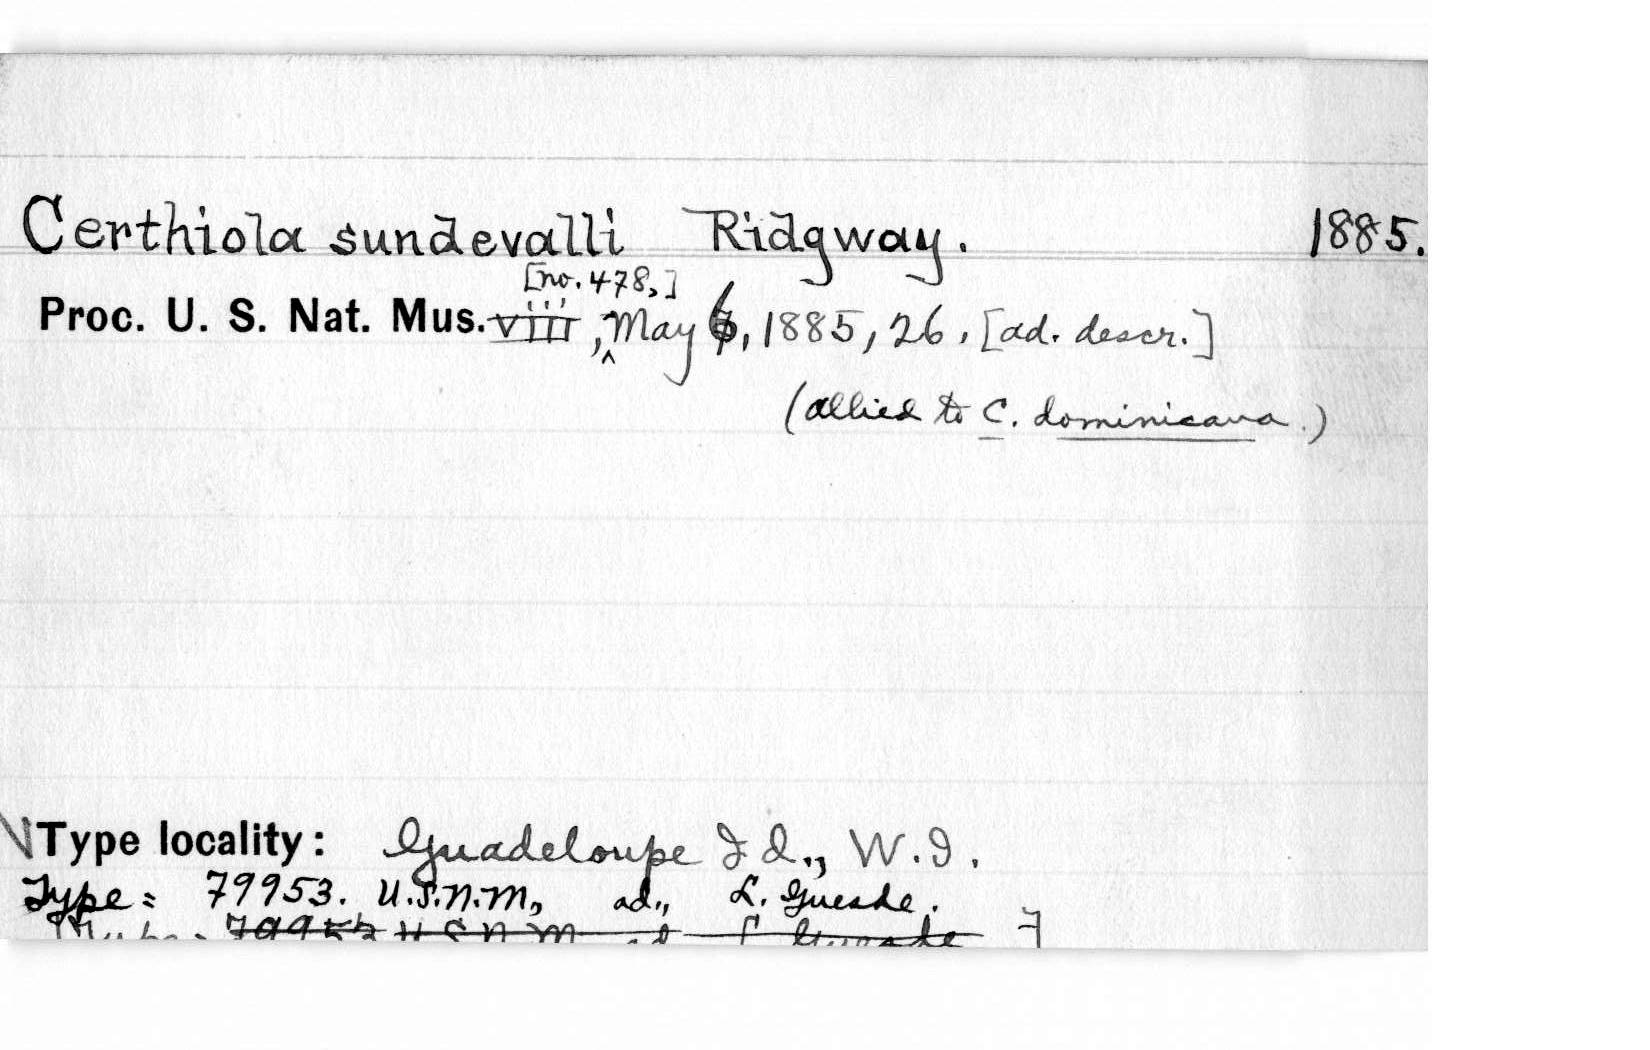 Certhiola sundevalli Ridgway. 1885.
[no. 478,]
Proc. U. S. Nat. Mus. viii, ^ May 6, 1885, 26, [ad. descr.]
(allied to C. dominicana.)
Type locality: Guadeloupe Id., W.I.
Type = 79953. U.S.N.M., ad., L. Guesde.
79953 U S N M ad L Guesde ]